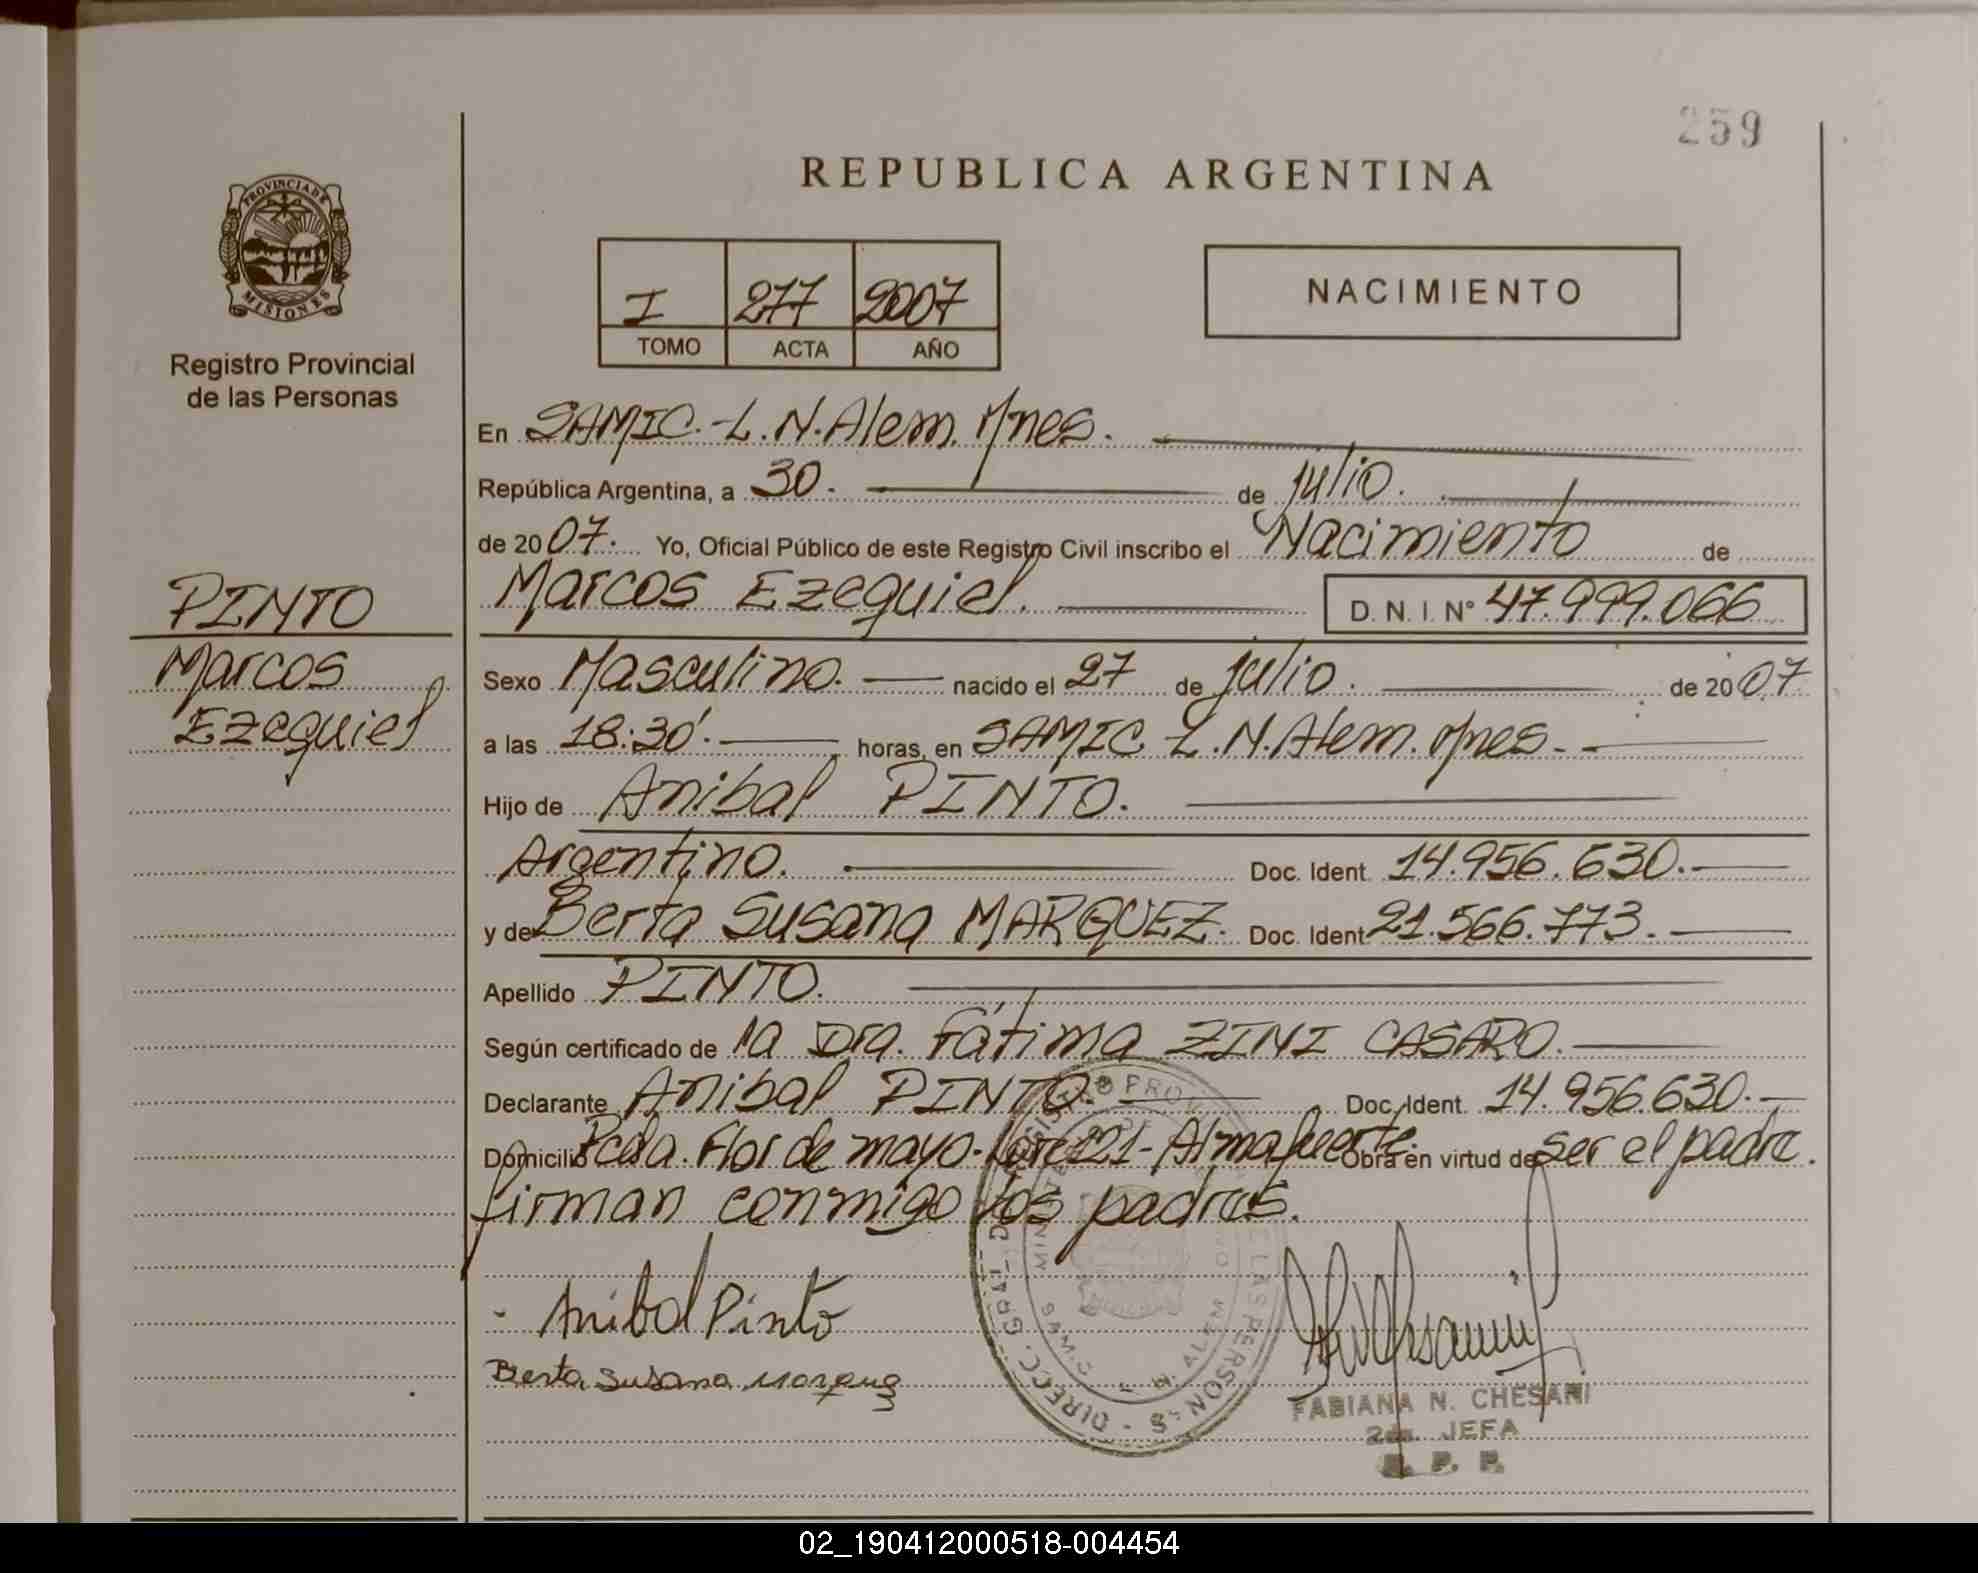 259
REPUBLICA ARGENTINA
PROVINCIA DE
MISIONES
Registro Provincial
de las Personas
I 277 2007
TOMO ACTA AÑO
NACIMIENTO
En SAMIC.-L.N.Alem. Mnes.
República Argentina, a 30. de julio.
de 2007. Yo, Oficial Público de este Registro Civil inscribo el Nacimiento de
Marcos Ezequiel. D. N. I. N° 47.999.066
PINTO
Marcos
Ezequiel
Sexo Masculino. nacido el 27 de julio. de 2007.
a las 18:30'. horas, en SAMIC L.N.Alem. Mnes.-
Hijo de Anibal PINTO.
Argentino. Doc. Ident. 14.956.630.-
y de Berta Susana MARQUEZ. Doc. Ident. 21.566.773.
Apellido PINTO.
Según certificado de la Dra. Fátima ZINI CASARO.
Declarante Anibal PINTO. Doc. Ident. 14.956.630.-
Domicilio Pcda. Flor de mayo-Lote 121-Almafuerte. Obra en virtud de ser el padre.
firman conmigo los padres.
Anibal Pinto
Berta Susana
FABIANA N. CHESANI
2da. JEFA
R. P. P.
02_190412000518-004454